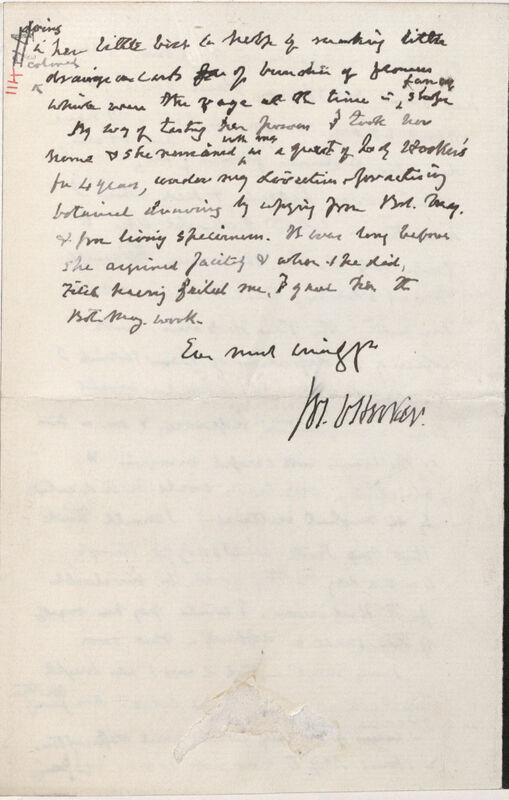 doing
in her little best to help by making little
coloured
drawings on cards of bunches of flowers
which were the rage at the time in fancy shops
By way of testing her powers I took her
home & she remained with me as a guest of Lady Hooker's
for 4 years, under my direction, practising
botanical drawing by copying from Bot. Mag.
& from living specimens. It was long before
she acquired facility & when she did,
Fitch having failed me, I gave her the
Bot. Mag. work.
Ever much
Jos. D Hooker.
114